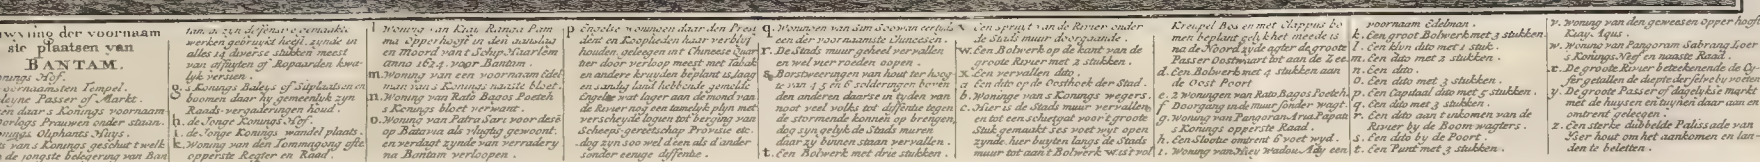 wysing der voornaam
ste plaatsen van
BANTAM.
onings Hof.
oornaamsten Tempel.
leyne Passer of Markt.
en daar s Konings voornaam
oorlogs Prauwen onder staan.
nings Oliphants Huys.
ts van s Konings geschut t welk
n de jongste belegering van Ban
tam, an zyn
werken gebruykt heeft. zynde in
alles 14 diverse stukken meest
van affuyten of Ropaarden kwa
lyk versien.
g. s Konings Baleys of Sitplaatsen
boomen daar hy gemeenlyk zyn
Raads vergaderingen houd.
h. de Jonge Konings Hof.
i. de Jonge Konings wandel plaats.
k. Woning van den Tommagong ofte
opperste Regter en Raad.
l Woning van Kiay Ranga Pam
ma Opperhooft in den aanslag
en Moord van t Schip Haarlem
anno 1624. voor Bantam.
m. Woning van een voornaam Edel
man van s Konings naaste bloet.
n. Woning van Rato Bagos Poeteh
s Konings bloet verwant.
o. Woning van Patra Sari voor dese
op Batavia als vlugtig gewoont.
en verdagt zynde van verradery
na Bantam verloopen.
p Engelse woningen daar den Presi
dent en Kooplieden haar verblyf
houden, gelegen int Chineese Quar
tier door verloop meest met Tabak
en andere kruyden beplant is, laag
en sandig land hebbende gemelde
Engelse wat lager aan de mond van
de Rivier nog een tamelyk pleyn met
verscheyde logien tot berging van
Scheeps gereetschap Provisie etc.
dog zyn soo wel d een als d ander
sonder eenige diffentie.
q. Woningen van Sim Soeivan eertyds
een der voornaamste Chineesen.
r. De Stads muur geheel vervallen
en wel vier roeden oopen.
s. Borstweeringen van hout ter hoog
te van 4 5 en 6 solderingen boven
den anderen daarse in tyden van
noot veel volks tot diffentie tegen
de stormende konnen op brengen,
dog zyn gelyk de Stads muren
daar zy binnen staan vervallen.
t. Een Bolwerk met drie stukken.
v Een spruyt van de Rivier onder
de Stads muur doorgaande.
w. Een Bolwerk op de kant van de
groote Rivier met 2 stukken.
x. Een vervallen dito
a Een dito op d Oosthoek der Stad.
b. Woninge van s Konings wegers.
c. Hier is de Stads muur vervallen
en tot een schietgat voor t groote
Stuk gemaakt ses voet wyt open
zynde. hier buyten langs de Stads
muur tot aan t Bolwerk w is t vol
Kreupel Bos en met Clappus bo
men beplant gelyk het meede is
na de Noord zyde agter de groote
Passer Oostwaart tot aan de Zee.
d. Een Bolwerk met 4 stukken aan
de Oost Poort.
e. 2 Woningen van Rato Bagos Poeteh.
f Doorgang in de muur sonder wagt.
g. Woning van Pangoran Arya Papati
s Konings opperste Raad.
h. Een Slootie omtrent 6 voet wyd.
i. Woning van Kiey Wadou Ady een
voornaam Edelman.
k. Een groot Bolwerk met 3 stukken.
l. Een klyn dito met 1 stuk.
m. Een dito met 2 stukken.
n. Een dito
o. Een dito met 3 stukken.
p. Een Capitaal dito met 5 stukken.
q. Een dito met 3 stukken.
r. Een dito aan t uytkomen van de
Rivier by de Boom wagters.
s. Een dito by de Poort.
t. Een Punt met 3 stukken.
v. Woning van den geweesen opper hooft
Kiay Aqus.
w. Woning van Pangoram Sabrang Loer
s Konings Neef en naaste Raad.
x. De groote Rivier beteekenende de Cy
fergetallen de diepte der selve by voeten
y. De groote Passer of dagelykse markt
met de huysen en tuynen daar aan en
omtrent gelegen.
z. Een sterke dubbelde Palissade van
Yser hout om het aankomen en lan
den te beletten.